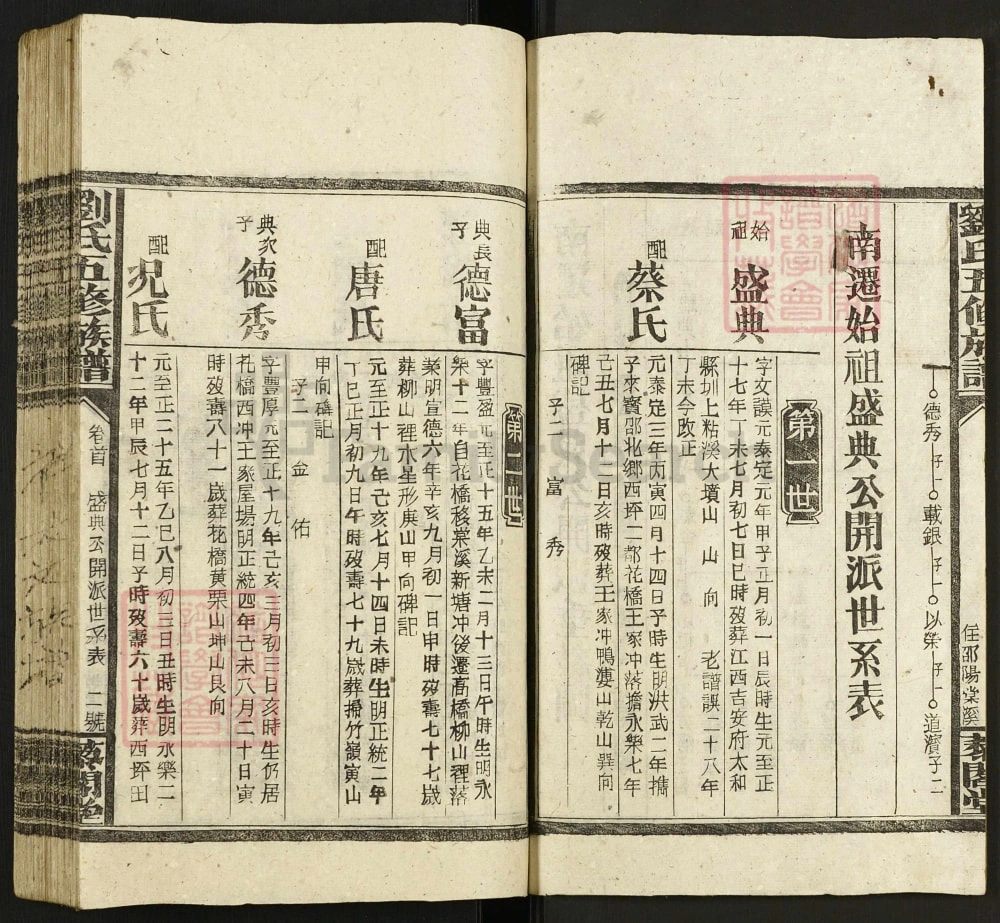 劉氏五修族譜
住邵陽棠溪
德秀 子一 載銀 子一 以榮 子一 道濱 子二
南遷始祖盛典公開派世系表
第一世
始祖 盛典
字文謨元泰定元年甲子正月初一日辰時生元至正
十七年丁未七月初七日巳時歿葬江西吉安府太和
縣圳上粘溪大墳山 山 向 老譜誤二十八年
丁未今改正
配 蔡氏
元泰定三年丙寅四月十四日子時生明洪武二年携
子來寳邵北鄉西坪二都花橋王家冲落擔永樂七年
己丑七月十二日亥時歿葬王家冲鴨婆山乾山巽向
碑記
子二 富 秀
第二世
典長子 德富
字豐盈元至正十五年乙未二月十三日午時生明永
樂十二年自花橋移棠溪新塘冲後遷高橋柳山裡落
業明宣德六年辛亥九月初一日申時歿壽七十七歲
葬柳山裡水星形庚山甲向碑記
配 唐氏
元至正十九年己亥七月十四日未時生明正統二年
丁巳正月初九日午時歿壽七十九歲葬掃竹嶺寅山
申向碑記
子二 金 佑
典次子 德秀
字豐厚元至正十九年己亥三月初三日亥時生仍居
花橋西冲王家屋場明正統四年己未八月二十日寅
時歿壽八十一歲葬花橋黃栗山坤山艮向
配 况氏
元至正二十五年乙巳八月初三日丑時生明永樂二
十二年甲辰七月十二日子時歿壽六十歲葬西坪田
劉氏五修族譜
卷首 盛典公開派世系表 二號